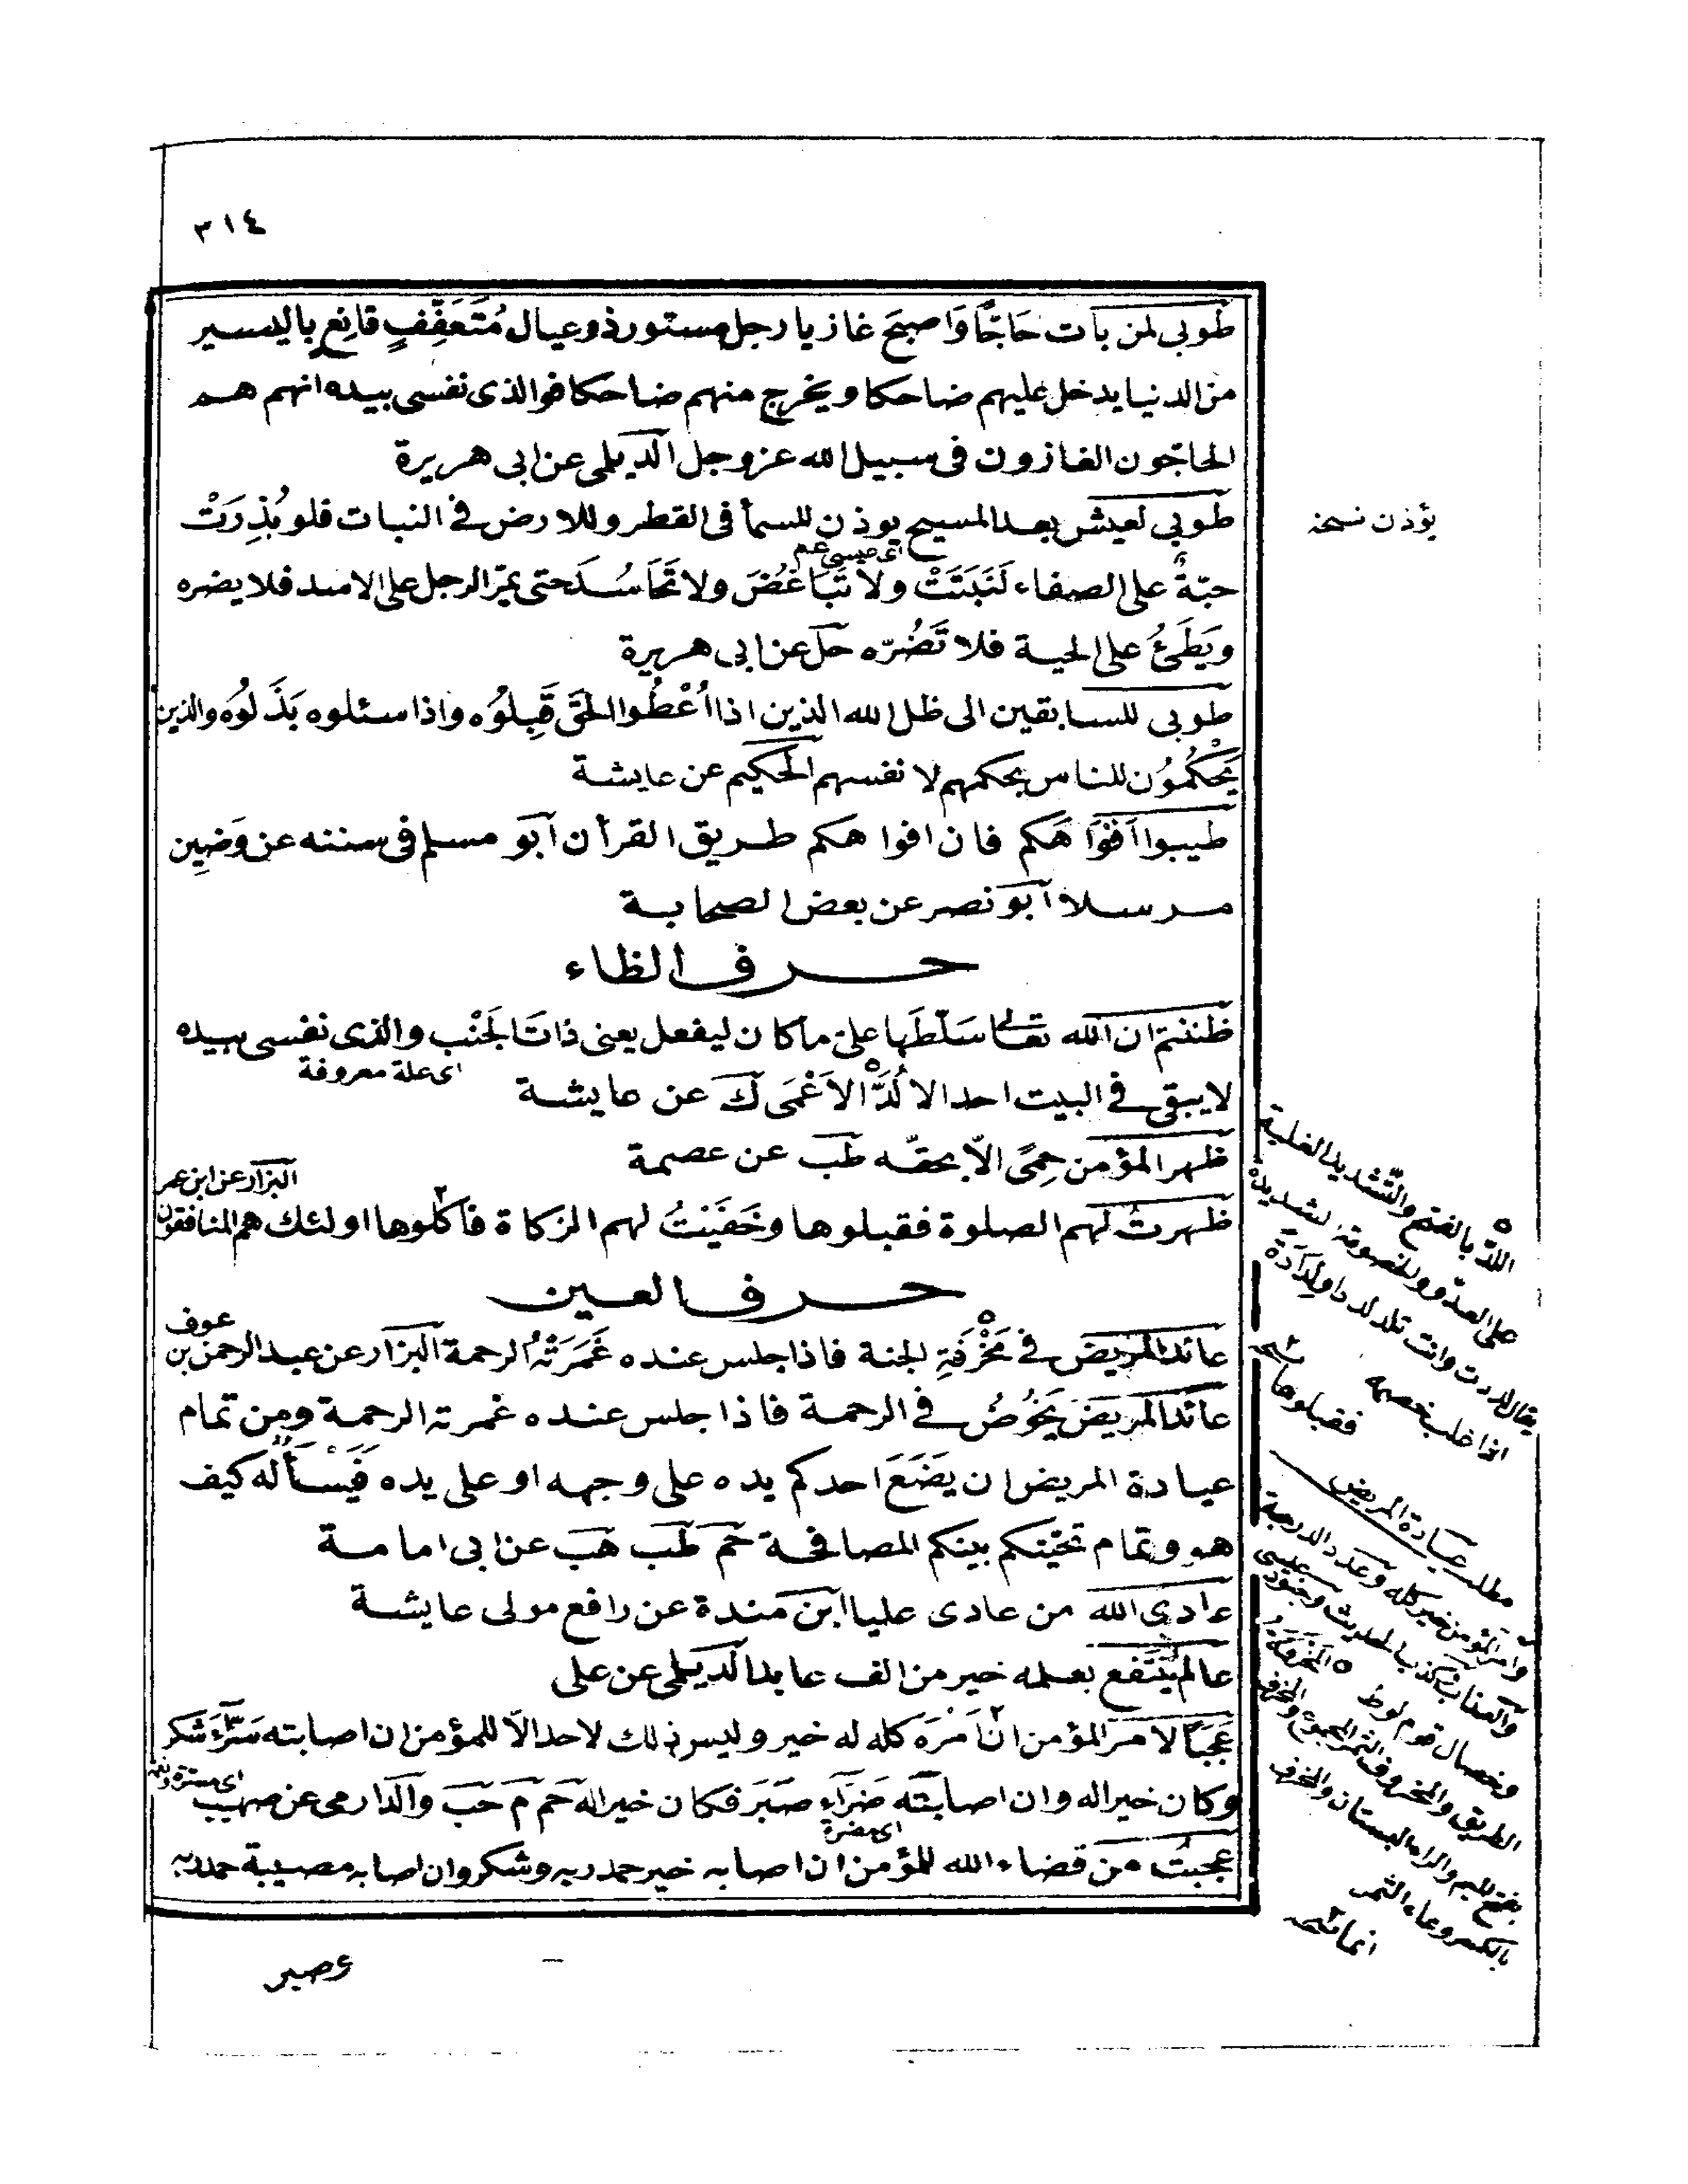 ٣١٤
طُوبى لمن بات حَاجًّا وَاصبحَ غازيا رجل مستور ذو عيال مُتَعَفِّفٍ قانِع باليسير
من الدنيا يدخل عليهم ضاحكا ويخرج منهم ضاحكا فوالذى نفسى بيده انهم هم
الحاجّون الغازون فى سبيل الله عز وجل الديلمى عن ابى هريرة
طوبى لعيش بعد المسيح يوذن للسمأ فى القطر وللارض فى النبات فلو بُذِرَتْ
يؤذن نسخه
اى عيسى عم
حبّةٌ على الصفاء لَنَبَتَتْ ولا تَبَاغُضَ ولا تَحَاسُدَ حتى يمرّ الرجل على الاسد فلا يضره
ويَطَئُ على الحية فلا تَضُرّه حل عن ابى هريرة
طوبى للسابقين الى ظل الله الذين اذا اُعْطُوا الحَقَّ قَبِلُوُه واذا سئلوه بَذَلوُه والذين
يَحْكُمُوُن للناس بحكمهم لانفسهم الحكيم عن عايشة
طيبوا اَفْوَاهَكم فان افواهكم طريق القرأن ابو مسلم فى سننه عن وَضِين
مرسلا ابو نصر عن بعض الصحابة
حرف الظاء
ظننتم ان الله تعالى سَلّطَها علىّ ما كان ليفعل يعنى ذاتَ الجَنْب والذى نفسى بيده
اى علة معروفة
لا يبقى فى البيت احد الا لُدَّ الا عَمّى ك عن عايشة
ظهر المؤمن حِمًى الاّ بحقّه طب عن عصمة
البزار عن ابن عمر
ظهرتْ لهم الصلوة فقبلوها وخَفِيَتْ لهم الزكاة فأكلوها اولئك هم المنافقون
حرف العين
عوف
عائد المريض فى مَخْرَفَةِ الجنة فاذا جلس عنده غَمَرَتْهُ الرحمة البزار عن عبد الرحمن بن
عائد المريض يَخُوضُ فى الرحمة فاذا جلس عنده غمرته الرحمة ومِن تمام
عيادة المريض ان يضَعَ احدكم يده على وجهه او على يده فَيَسْأَلُه كيف
هو وتمام تحيّتكم بينكم المصافحة حم طب هب عن ابى امامة
عادى الله من عادى عليا ابن مندة عن رافع مولى عايشة
عالم يُنْتَفع بعلمه خير من الف عابد الديلمى عن على
عَجَبًا لامر المؤمن انّ اَمْرَه كله له خير وليس ذلك لاحد الاّ للمؤمن ان اصابته سَرَّاءُ شكر
وكان خيرا له وان اصابته ضَرَّاءِ صَبَرَ فكان خيرا له حم م حب والدارمى عن صهيب
اى مضرة
عجبتُ من قضاء الله للمؤمن ان اصابه خير حمد ربه وشكر وان اصابه مصيبة حمد ربه
وصبر
اللدّ بالفتح والتّشديد الغلبة
على العدوّ والخصومة الشديدة
يقال لددت وانت تلد لددا ولدَادَة
اذا غلب خصمه
فقبلوها
مطلب عيادة المريض
وامر المؤمن خير كله وعدد الدرجة
وخصال قوم لوط
المَخْرَفَةُ
الطريق والمخروف الثمر المجموع والمخرف
بفتح الميم والراء البستان والمخرف
بالكسر وعاء الثمر